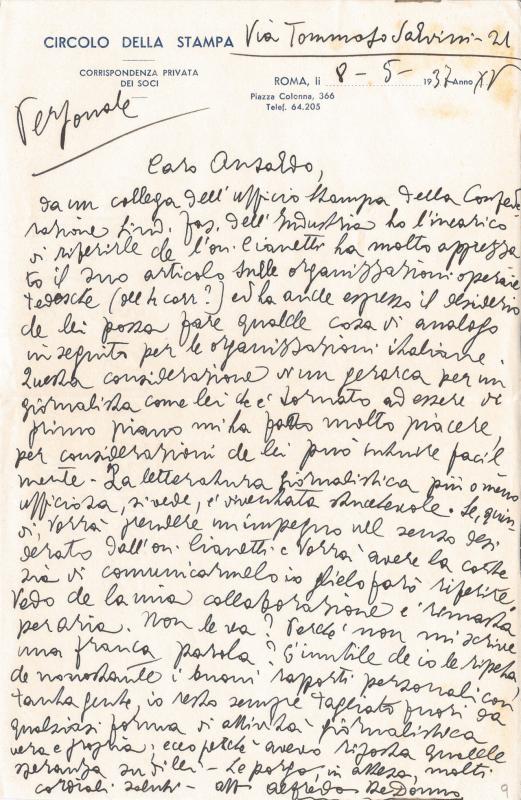 CIRCOLO DELLA STAMPA Via Tommaso Salvini - 21
CORRISPONDENZA PRIVATA
DEI SOCI
ROMA, lì 8 - 5 - 1937 Anno XV
Piazza Colonna, 366
Telef. 64.205
Personale
Caro Ansaldo,
da un collega dell'ufficio stampa della Confede
razione Sind. fas. dell'Industria ho l'incarico
di riferirle che l'on. Cianetti ha molto apprezza
to il suo articolo sulle organizzazioni operaie
tedesche ( ed ha anche espresso il desiderio
che lei possa fare qualche cosa di analogo
in seguito per le organizzazioni italiane.
Questa considerazione di un gerarca per un
giornalista come lei che è tornato ad essere di
primo piano mi ha fatto molto piacere,
per considerazioni che lei può intuire facil
mente - La letteratura giornalistica più o meno
ufficiosa, si vede, è diventata stucchevole. Se, quin
di, vorrà prendere un impegno nel senso desi
derato dall'on. Cianetti e vorrà avere la corte
sia di comunicarmelo io glielo farò riferire
Vedo che la mia collaborazione è rimasta
per aria. Non le va? Perchè non mi scrive
una franca parola? È inutile che io le ripeta,
che nonostante i buoni rapporti personali con
tanta gente, io resto sempre tagliato fuori da
qualsiasi forma di attività giornalistica
vera e propria; ecco perchè avevo riposta qualche
speranza su di lei - Le porgo, in attesa, molti
cordiali saluti - Alfredo De Donno
9